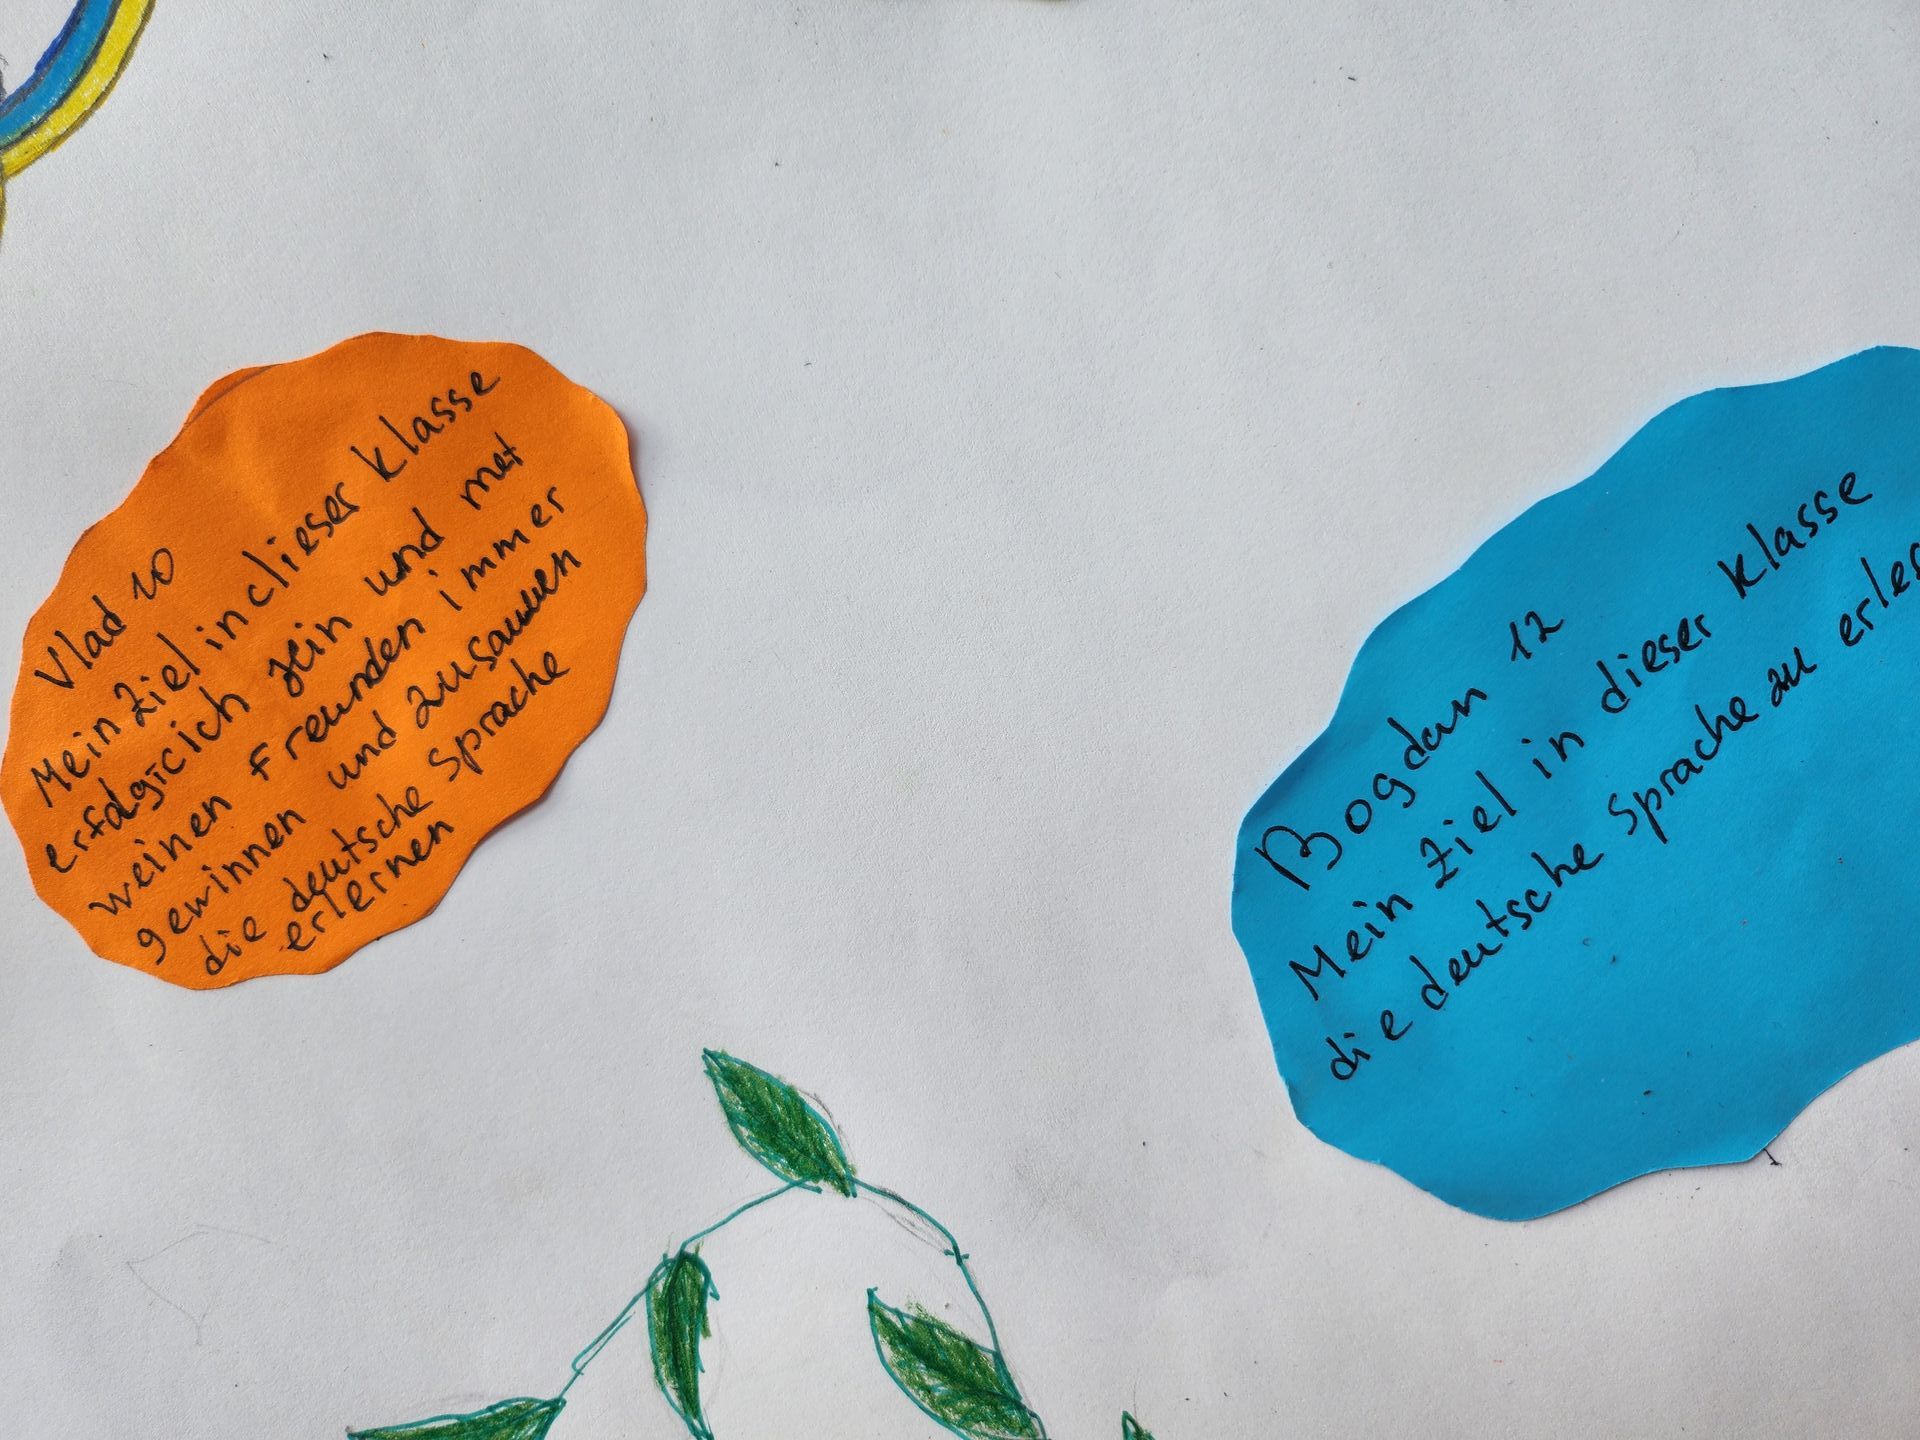 Vlad 10
Mein Ziel in clieser Klasse
erfolgicich sein und met
weinen Freunden immer
gewinnen und zusammen
die deutsche Sprache
erlernen
Bogdan 12
Mein Ziel in dieser Klasse
die deutsche Sprache zu erler